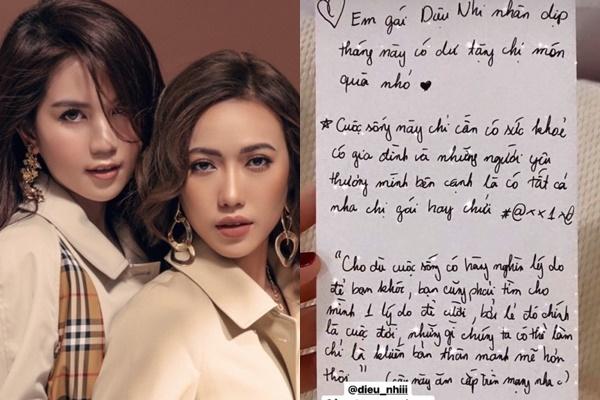 Em gái Diệu Nhi nhân dịp
tháng này có dư tặng chị món
quà nhỏ ♥
* Cuộc sống này chỉ cần có sức khoẻ
có gia đình và những người yêu
thương mình bên cạnh là có tất cả
nha chị gái hay chửi #@^^1^@
"Cho dù cuộc sống có hàng nghìn lý do
để bạn khóc, bạn cũng phải tìm cho
mình 1 lý do để cười, bởi lẽ đó chính
là cuộc đời, những gì chúng ta có thể làm
chỉ là khiến bản thân mạnh mẽ hơn
thôi" (câu này ăn cắp trên mạng nha)
@dieu_nhiii